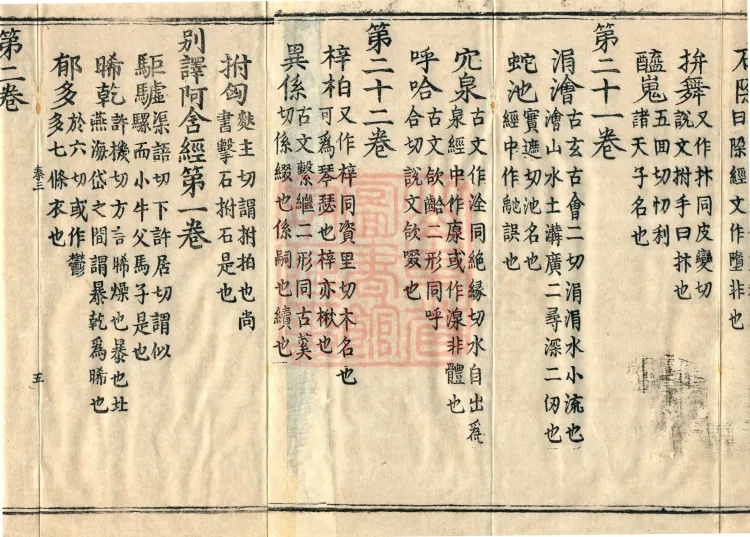 曰陊經文作墮非也
拚舞 又作抃同皮變切
說文拊手曰抃也
醯嵬 五回切忉利
諸天子名也
第二十一卷
涓澮 古玄古會二切涓涓水小流也
澮山水土溝廣二尋深二仞也
蛇池 實遮切池名也
經中作虵誤也
泉 古文作洤同絶緣切水自出爲
泉經中作厡或作湶非體也
呼哈 古文欱二形同呼
合切說文欱啜也
第二十二卷
梓柏 又作梓同資里切木名也
可爲琴瑟也梓亦楸也
異係 古文繫繼二形同古
切係綴也係嗣也續也
拊匈 麩主切謂拊拍也尚
書擊石拊石是也
別譯阿含經第一卷
駏驉 渠語切下許居切謂似
騾而小牛父馬子是也
晞乾 許機切方言晞燥也暴也北
燕海岱之間謂暴乾爲晞也
郁多 於六切或作鬱
多七條衣也
卷三 五
第二卷